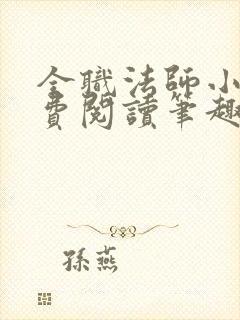 全職法師小
費閱讀筆趣
孫燕